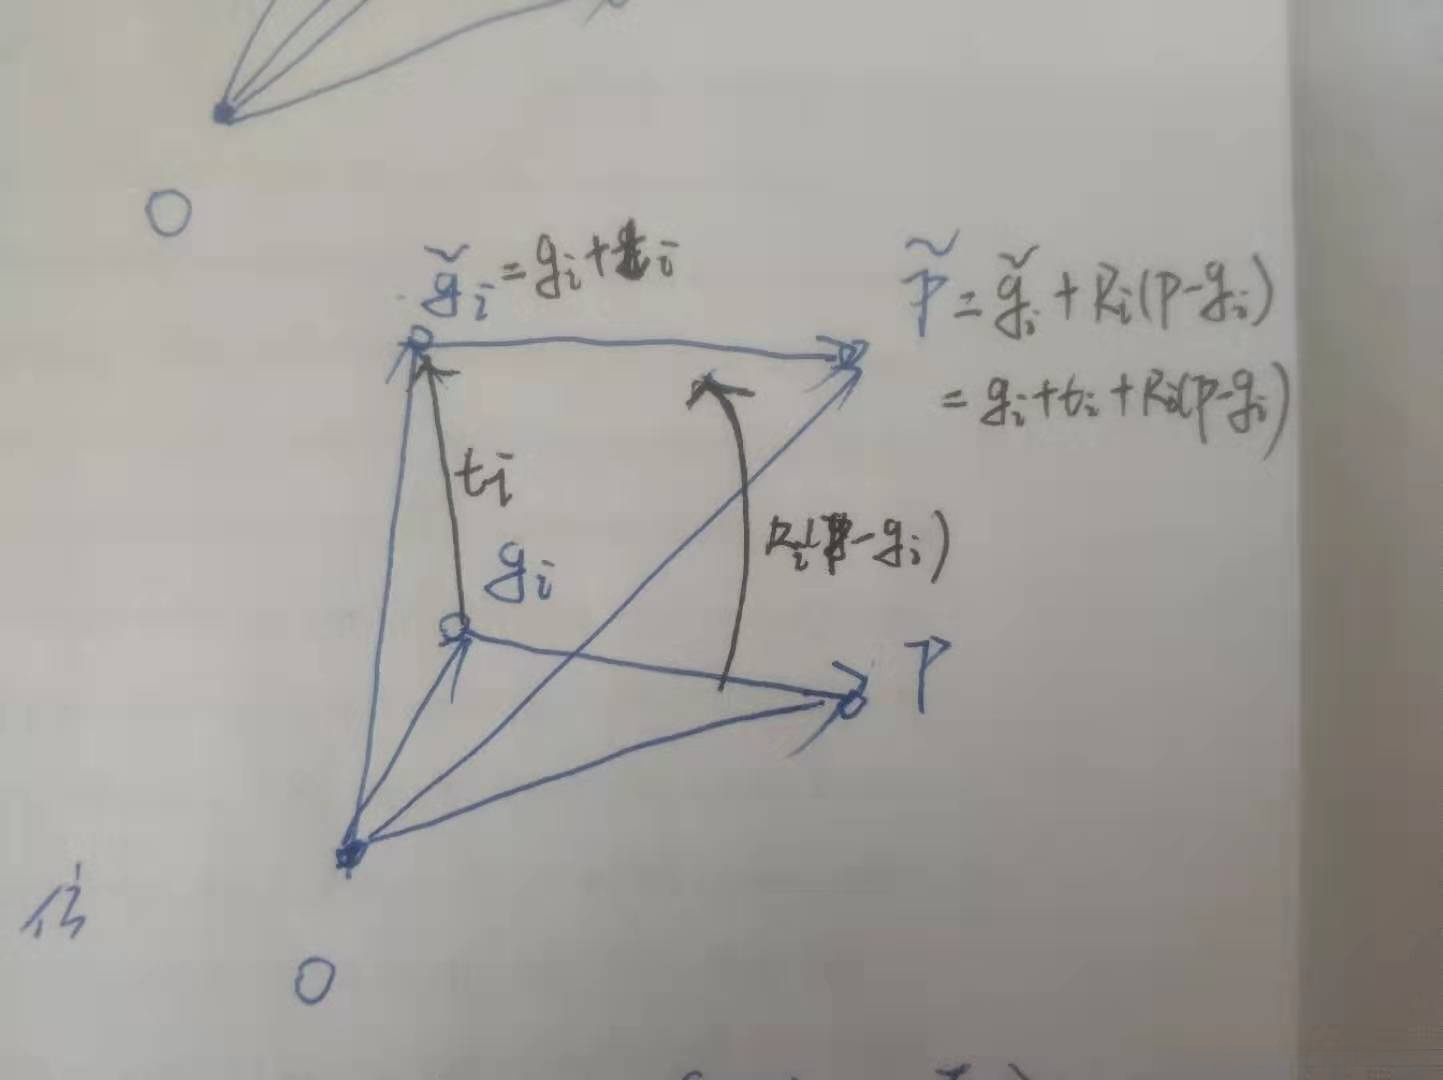 O
g̃i = gi + ti
p̃ = g̃i + Ri(p-gi)
= gi + ti + Ri(p-gi)
ti
gi
Ri(p-gi)
P
O